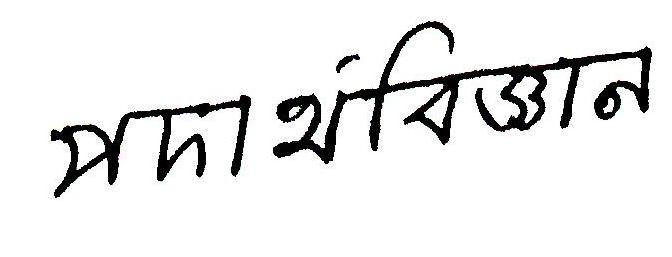 পদার্থবিজ্ঞান